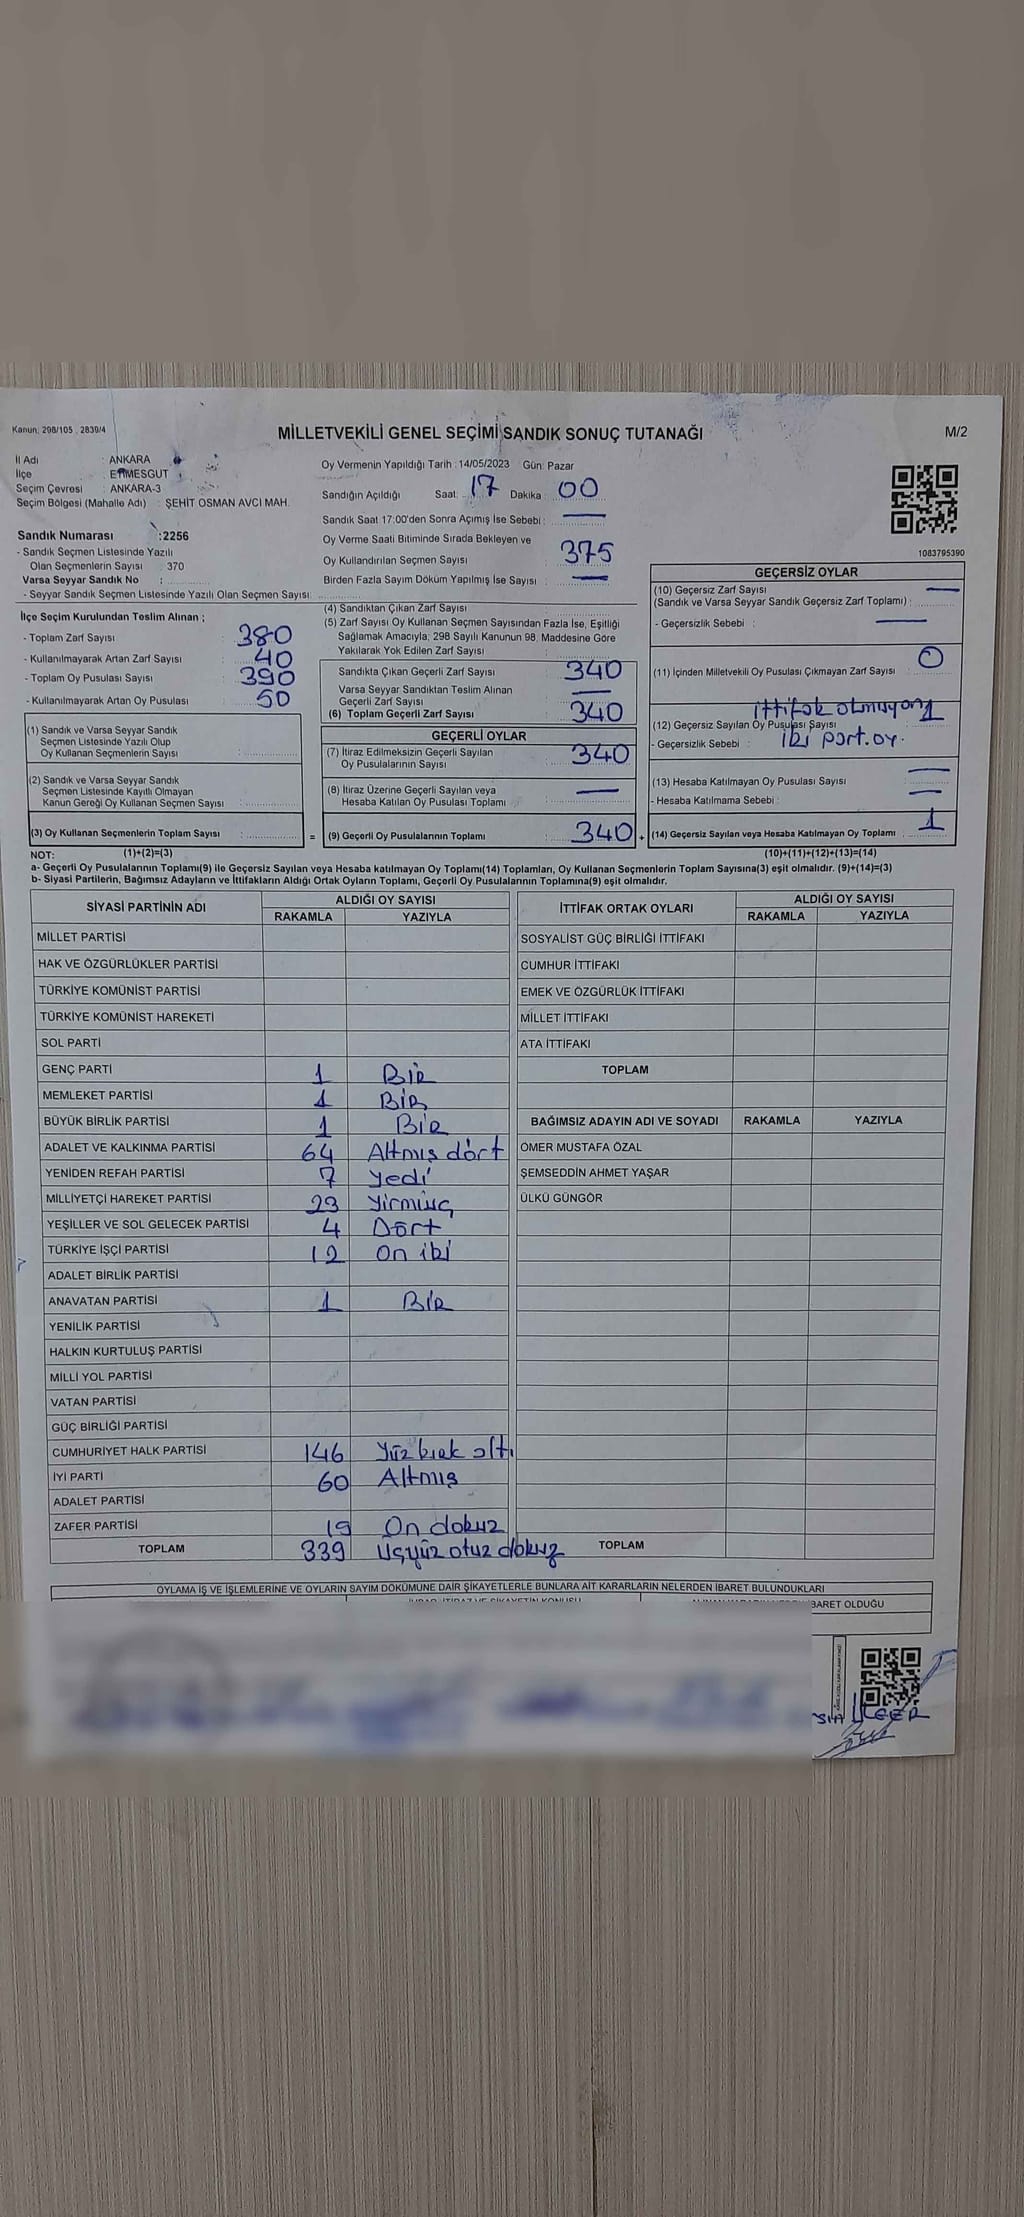 Kanun: 298/105 , 2839/4
MİLLETVEKİLİ GENEL SEÇİMİ SANDIK SONUÇ TUTANAĞI
M/2
İl Adı : ANKARA
İlçe : ETİMESGUT
Seçim Çevresi : ANKARA-3
Seçim Bölgesi (Mahalle Adı) : ŞEHİT OSMAN AVCI MAH.
Sandık Numarası :2256
- Sandık Seçmen Listesinde Yazılı
Olan Seçmenlerin Sayısı : 370
Varsa Seyyar Sandık No :
- Seyyar Sandık Seçmen Listesinde Yazılı Olan Seçmen Sayısı:
Oy Vermenin Yapıldığı Tarih : 14/05/2023 Gün: Pazar
Sandığın Açıldığı Saat: 17 Dakika : 00
Sandık Saat 17:00'den Sonra Açımış İse Sebebi : —
Oy Verme Saati Bitiminde Sırada Bekleyen ve
Oy Kullandırılan Seçmen Sayısı : 375
Birden Fazla Sayım Döküm Yapılmış İse Sayısı : —
1083795390
İlçe Seçim Kurulundan Teslim Alınan ;
- Toplam Zarf Sayısı : 380
- Kullanılmayarak Artan Zarf Sayısı : 40
- Toplam Oy Pusulası Sayısı : 390
- Kullanılmayarak Artan Oy Pusulası : 50
(1) Sandık ve Varsa Seyyar Sandık
Seçmen Listesinde Yazılı Olup
Oy Kullanan Seçmenlerin Sayısı :
(2) Sandık ve Varsa Seyyar Sandık
Seçmen Listesinde Kayıtlı Olmayan
Kanun Gereği Oy Kullanan Seçmen Sayısı :
(3) Oy Kullanan Seçmenlerin Toplam Sayısı :
(4) Sandıktan Çıkan Zarf Sayısı :
(5) Zarf Sayısı Oy Kullanan Seçmen Sayısından Fazla İse, Eşitliği
Sağlamak Amacıyla; 298 Sayılı Kanunun 98. Maddesine Göre
Yakılarak Yok Edilen Zarf Sayısı :
Sandıkta Çıkan Geçerli Zarf Sayısı : 340
Varsa Seyyar Sandıktan Teslim Alınan
Geçerli Zarf Sayısı : —
(6) Toplam Geçerli Zarf Sayısı : 340
GEÇERLİ OYLAR
(7) İtiraz Edilmeksizin Geçerli Sayılan
Oy Pusulalarının Sayısı : 340
(8) İtiraz Üzerine Geçerli Sayılan veya
Hesaba Katılan Oy Pusulası Toplamı : —
= (9) Geçerli Oy Pusulalarının Toplamı : 340 +
GEÇERSİZ OYLAR
(10) Geçersiz Zarf Sayısı : —
(Sandık ve Varsa Seyyar Sandık Geçersiz Zarf Toplamı) :
- Geçersizlik Sebebi : —
(11) İçinden Milletvekili Oy Pusulası Çıkmayan Zarf Sayısı : 0
ittifak olmuyan 1
(12) Geçersiz Sayılan Oy Pusulası Sayısı
- Geçersizlik Sebebi : iki part. oy.
(13) Hesaba Katılmayan Oy Pusulası Sayısı : —
- Hesaba Katılmama Sebebi : —
(14) Geçersiz Sayılan veya Hesaba Katılmayan Oy Toplamı : 1
NOT: (1)+(2)=(3) (10)+(11)+(12)+(13)=(14)
a- Geçerli Oy Pusulalarının Toplamı(9) ile Geçersiz Sayılan veya Hesaba katılmayan Oy Toplamı(14) Toplamları, Oy Kullanan Seçmenlerin Toplam Sayısına(3) eşit olmalıdır. (9)+(14)=(3)
b- Siyasi Partilerin, Bağımsız Adayların ve İttifakların Aldığı Ortak Oyların Toplamı, Geçerli Oy Pusulalarının Toplamına(9) eşit olmalıdır.
SİYASİ PARTİNİN ADI ALDIĞI OY SAYISI
RAKAMLA YAZIYLA
MİLLET PARTİSİ
HAK VE ÖZGÜRLÜKLER PARTİSİ
TÜRKİYE KOMÜNİST PARTİSİ
TÜRKİYE KOMÜNİST HAREKETİ
SOL PARTİ
GENÇ PARTİ 1 Bir
MEMLEKET PARTİSİ 1 Bir
BÜYÜK BİRLİK PARTİSİ 1 Bir
ADALET VE KALKINMA PARTİSİ 64 Altmış dört
YENİDEN REFAH PARTİSİ 7 Yedi
MİLLİYETÇİ HAREKET PARTİSİ 23 Yirmiüç
YEŞİLLER VE SOL GELECEK PARTİSİ 4 Dört
TÜRKİYE İŞÇİ PARTİSİ 12 On iki
ADALET BİRLİK PARTİSİ
ANAVATAN PARTİSİ 1 Bir
YENİLİK PARTİSİ
HALKIN KURTULUŞ PARTİSİ
MİLLİ YOL PARTİSİ
VATAN PARTİSİ
GÜÇ BİRLİĞİ PARTİSİ
CUMHURİYET HALK PARTİSİ 146 Yüz kırk altı
İYİ PARTİ 60 Altmış
ADALET PARTİSİ
ZAFER PARTİSİ 19 On dokuz
TOPLAM 339 Üçyüz otuz dokuz
İTTİFAK ORTAK OYLARI ALDIĞI OY SAYISI
RAKAMLA YAZIYLA
SOSYALİST GÜÇ BİRLİĞİ İTTİFAKI
CUMHUR İTTİFAKI
EMEK VE ÖZGÜRLÜK İTTİFAKI
MİLLET İTTİFAKI
ATA İTTİFAKI
TOPLAM
BAĞIMSIZ ADAYIN ADI VE SOYADI RAKAMLA YAZIYLA
ÖMER MUSTAFA ÖZAL
ŞEMSEDDİN AHMET YAŞAR
ÜLKÜ GÜNGÖR
TOPLAM
OYLAMA İŞ VE İŞLEMLERİNE VE OYLARIN SAYIM DÖKÜMÜNE DAİR ŞİKAYETLERLE BUNLARA AİT KARARLARIN NELERDEN İBARET BULUNDUKLARI
BARET OLDUĞU